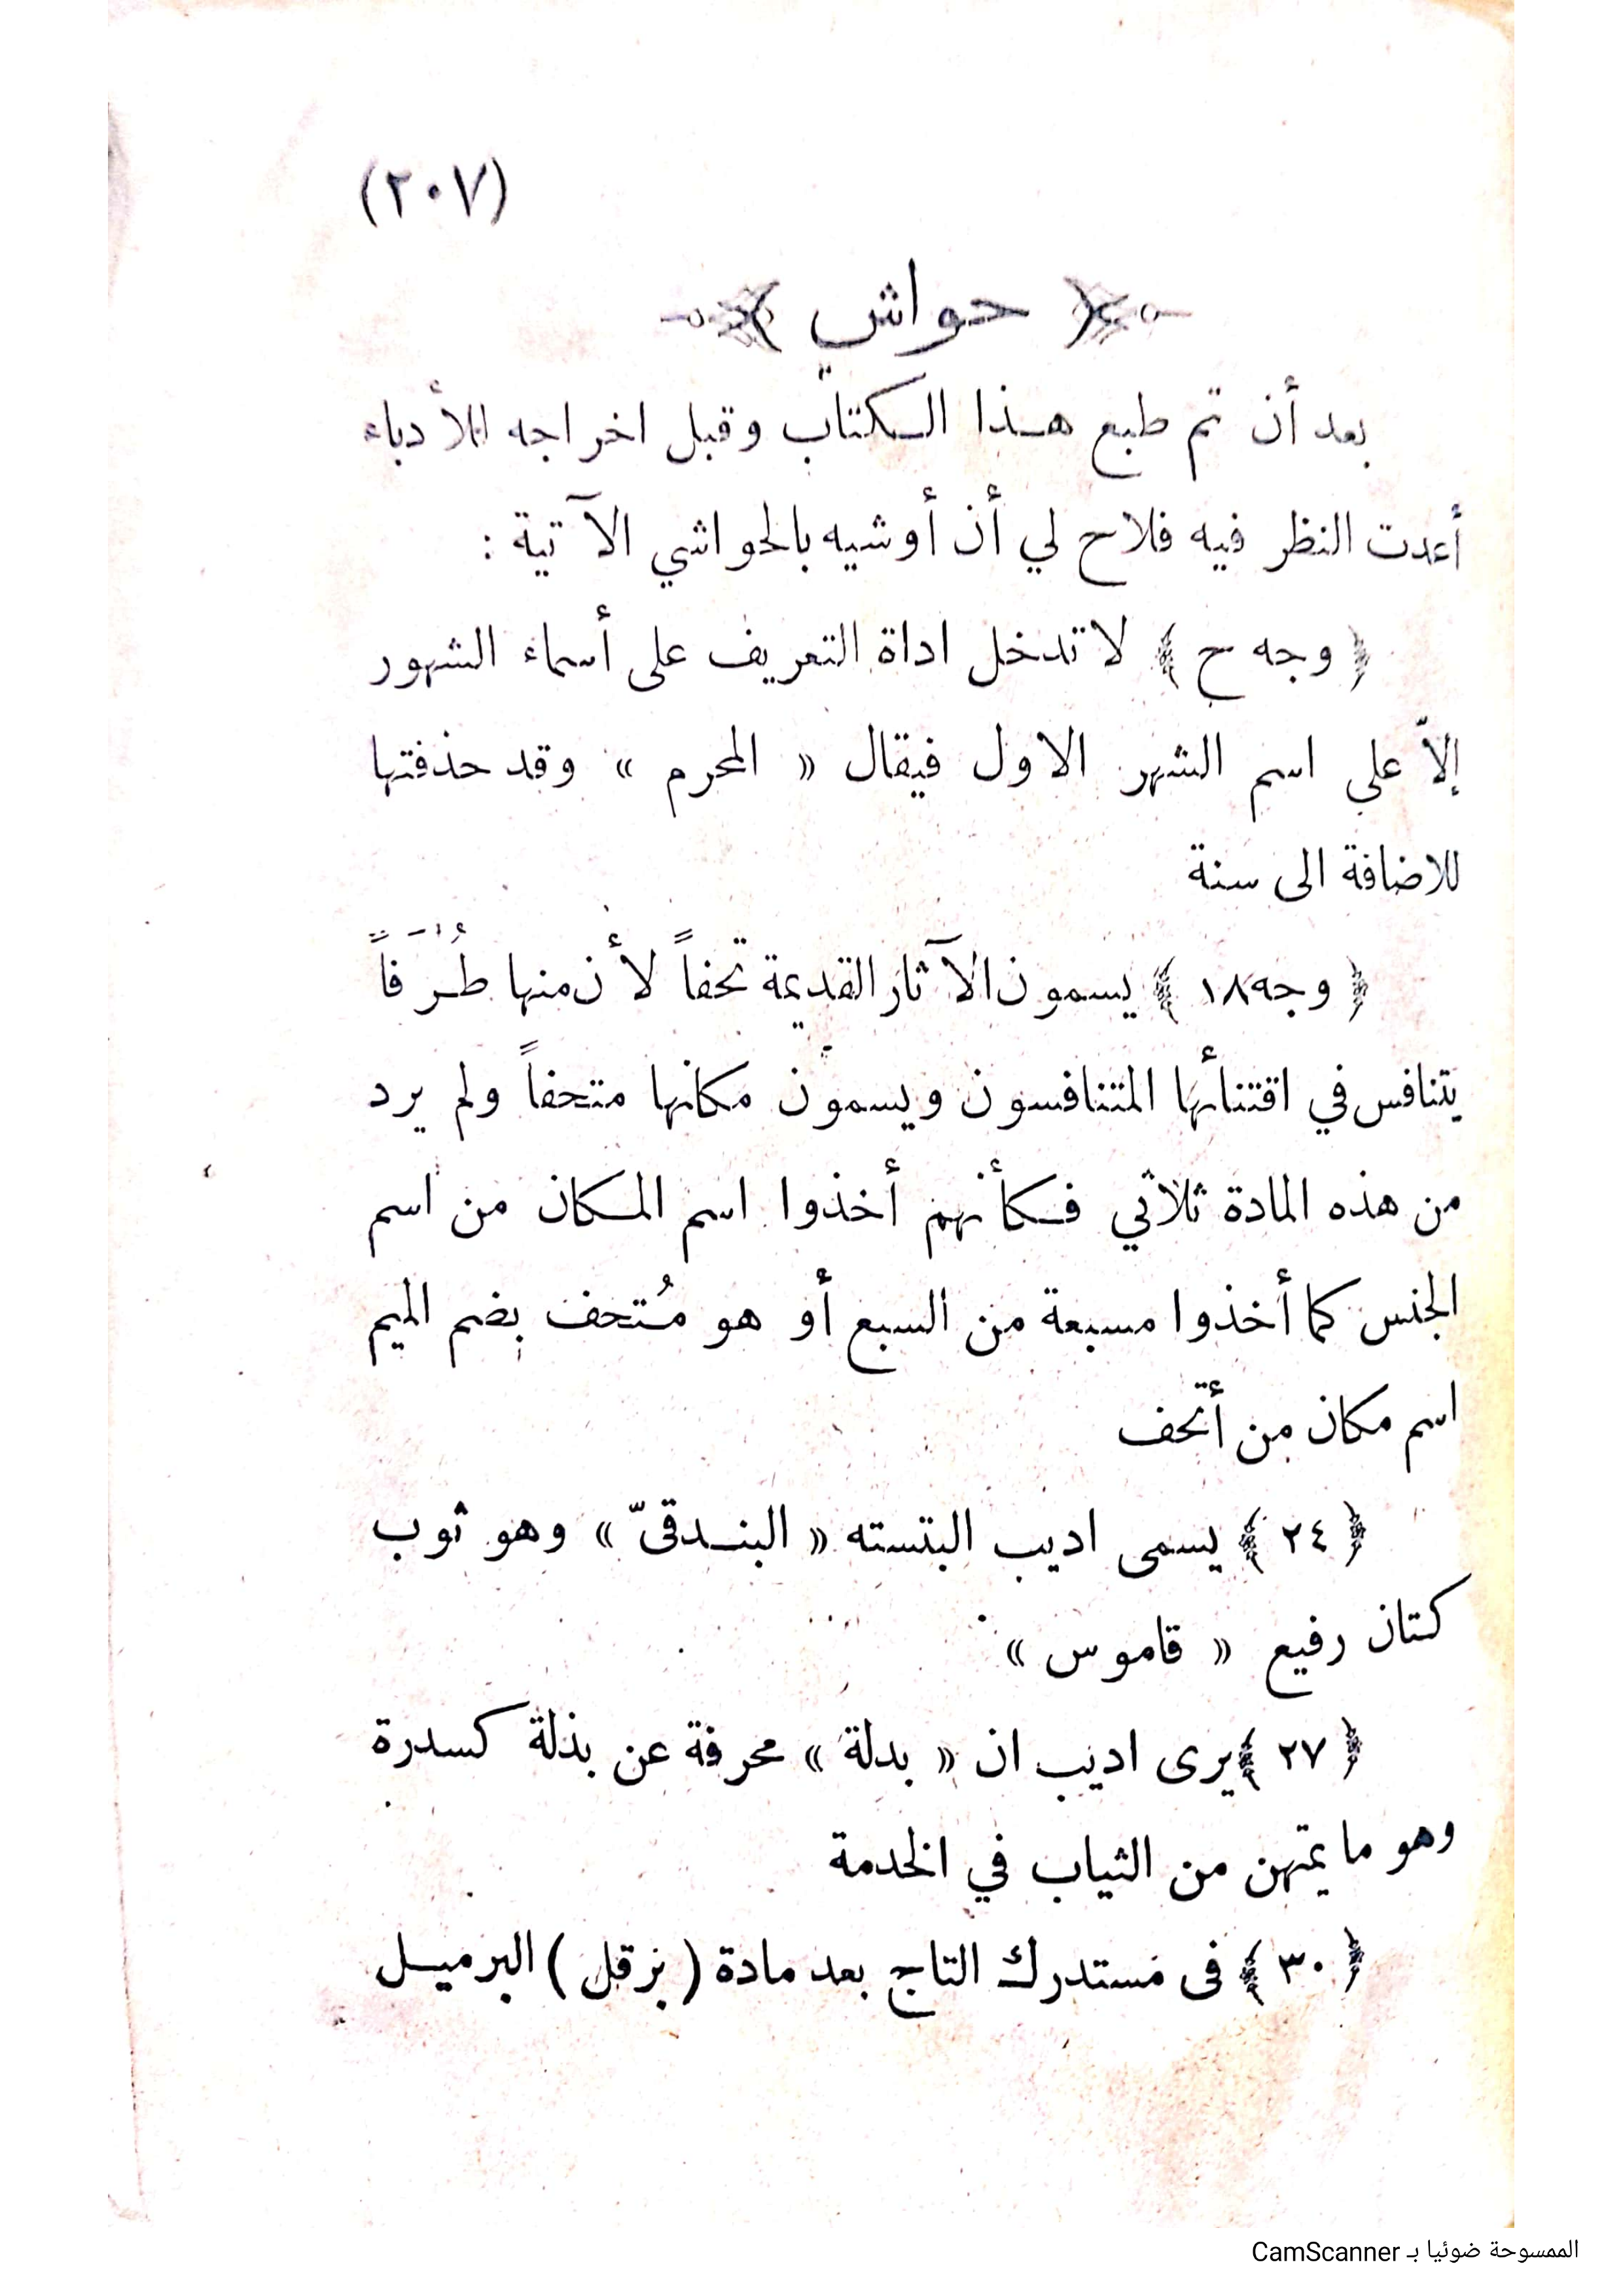 (٢٠٧)
﴿ حواش ﴾
بعد أن تم طبع هذا الكتاب وقبل اخراجه للأدباء
أعدت النظر فيه فلاح لي أن أوشيه بالحواشي الآتية :
﴿ وجه ح ﴾ لا تدخل اداة التعريف على أسماء الشهور
إلاّ على اسم الشهر الاول فيقال « المحرم » وقد حذفتها
للاضافة الى سنة
﴿ وجه ١٨ ﴾ يسمون الآثار القديمة تحفاً لأن منها طُرَفاً
يتنافس في اقتنائها المتنافسون ويسمون مكانها متحفاً ولم يرد
من هذه المادة ثلاثي فكأنهم أخذوا اسم المكان من اسم
الجنس كما أخذوا مسبعة من السبع أو هو مُتحف بضم الميم
اسم مكان من أتحف
﴿ ٢٤ ﴾ يسمى اديب البتسته « البندقىّ » وهو ثوب
كتان رفيع « قاموس »
﴿ ٢٧ ﴾ يرى اديب ان « بدلة » محرفة عن بذلة كسدرة
وهو ما يمتهن من الثياب في الخدمة
﴿ ٣٠ ﴾ فى مستدرك التاج بعد مادة ( بزقل ) البرميل
الممسوحة ضوئيا بـ CamScanner